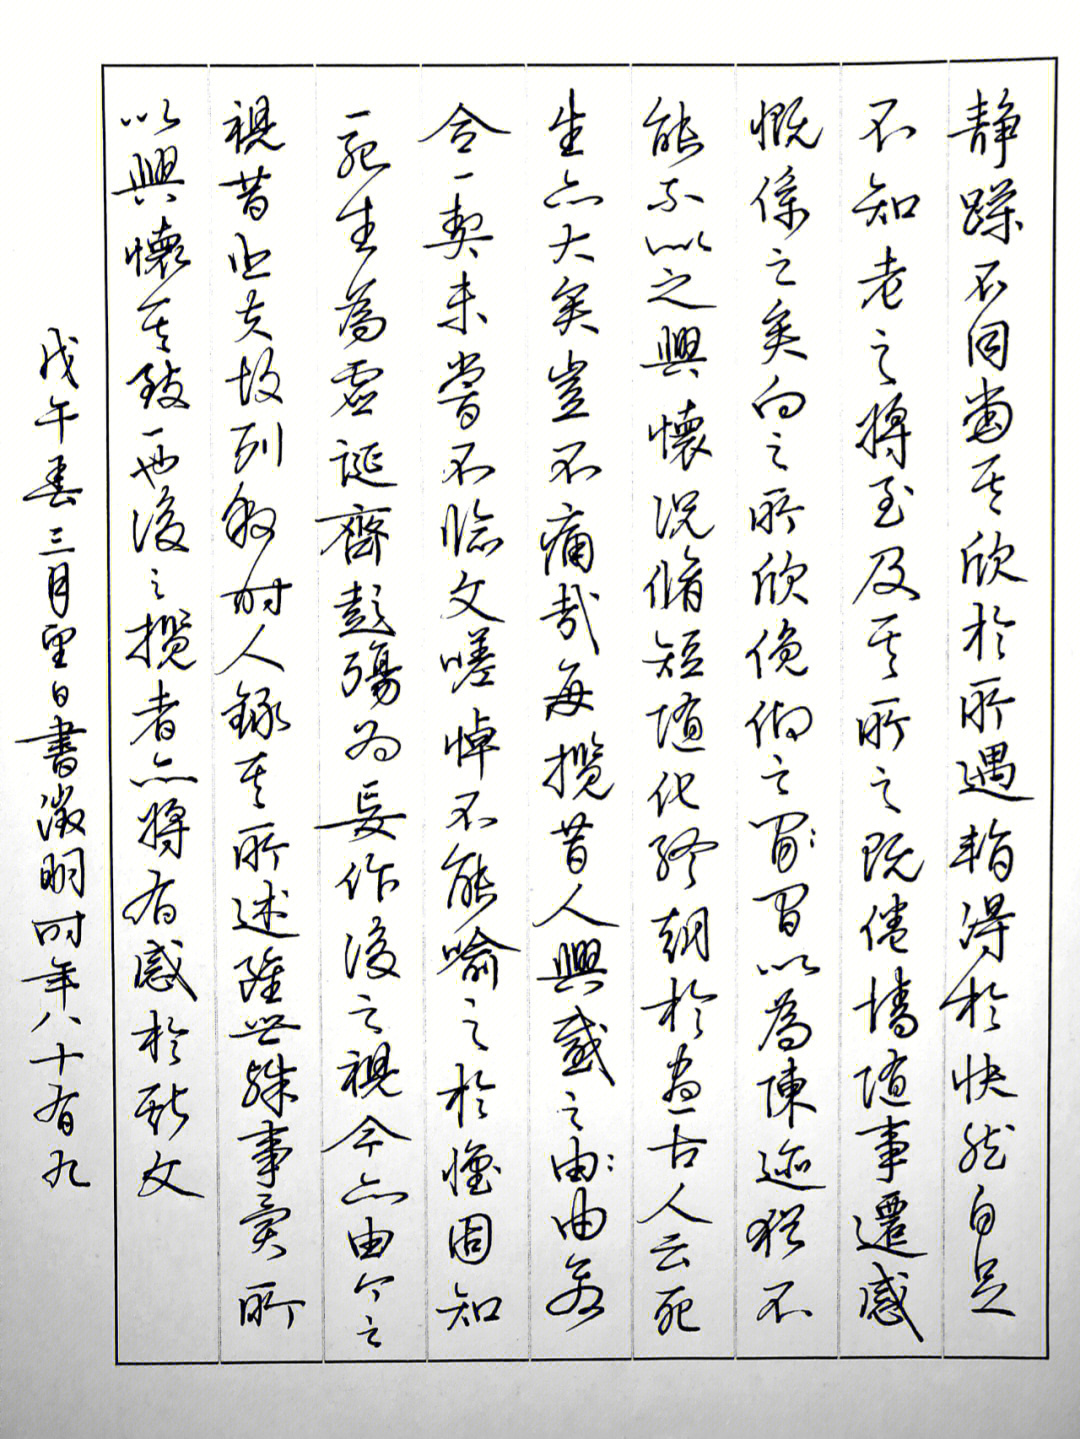 静躁不同當其欣於所遇暫得於快然自足
不知老之將至及其所之既倦情随事遷感
慨係之矣向之所欣俛仰之間:間以為陳迹猶不
能不以之興懷況脩短随化終期於盡古人云死
生亦大矣豈不痛哉每攬昔人興感之由:由若
合一契未嘗不臨文嗟悼不能喻之於懷固知
一死生為虚誕齊彭殤为妄作後之視今亦由今之
視昔悲夫故列叙時人錄其所述雖世殊事異所
以興懷其致一也後之攬者亦將有感於斯文
戊午春三月望日書徵明時年八十有九